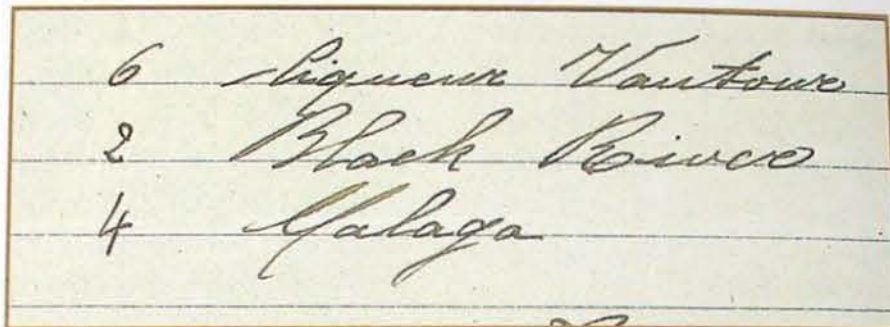 6 Liqueur Vautour
2 Black River
4 Malaga